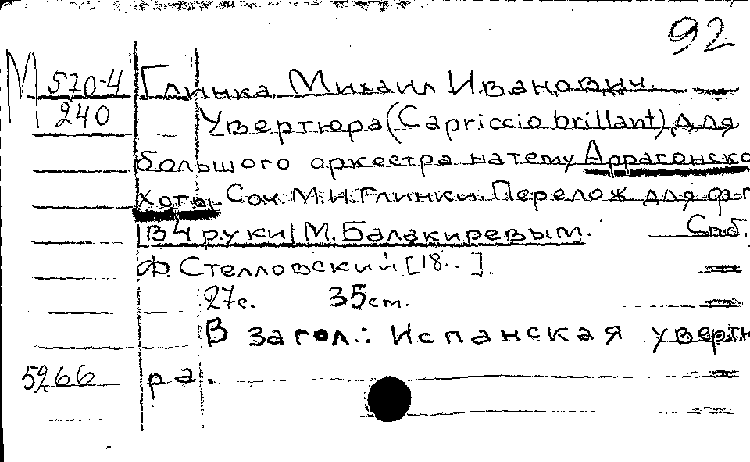 92
М 570-4 Глинка Михаил Иванович.
240 Увертюра (Capriccio brillant) для
большого оркестра на тему Аррагонско
хоты. Соч. М.И. Глинки. Перелож для ф-п
|в 4 руки| М. Балакиревым. Спб.
Ф. Стелловский [18..]
27с. 35см.
В загол.: Испанская увертю
5966 ра.